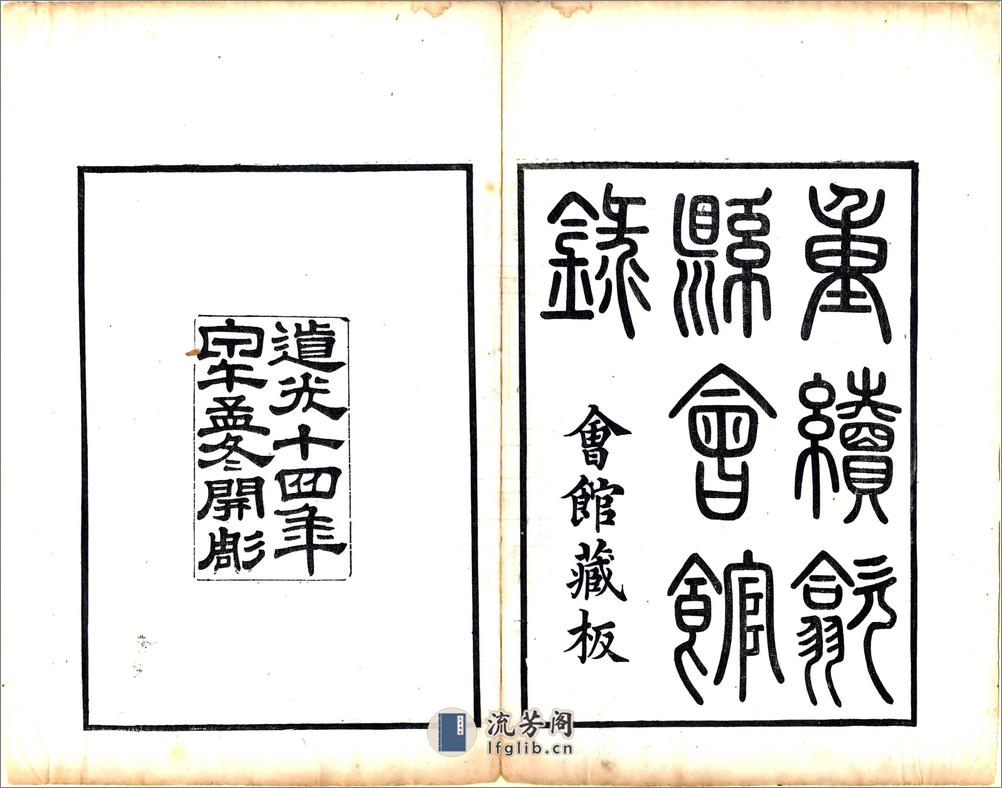 重續歙
縣會館
錄
會館藏板
道光十四年
甲午孟冬開彫
流芳阁
lfglib.cn